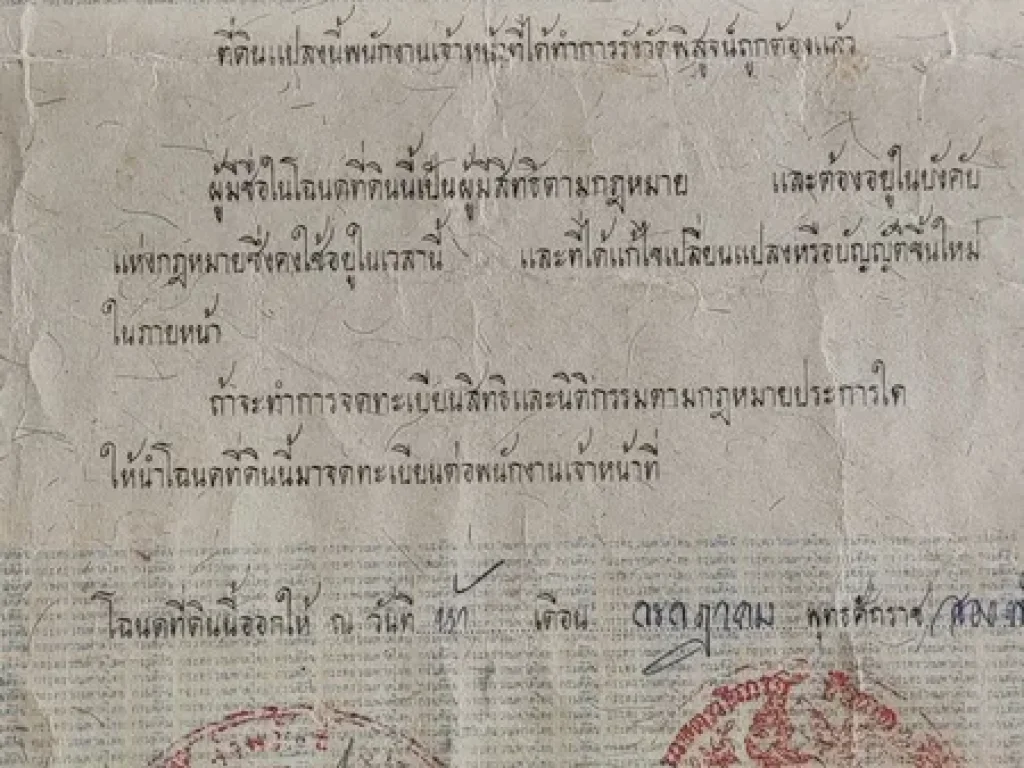 ที่ดินแปลงนี้พนักงานเจ้าหน้าที่ได้ทำการรังวัดพิสูจน์ถูกต้องแล้ว
ผู้มีชื่อในโฉนดที่ดินนี้เป็นผู้มีสิทธิตามกฎหมาย และต้องอยู่ในบังคับ
แห่งกฎหมายซึ่งคงใช้อยู่ในเวลานี้ และที่ได้แก้ไขเปลี่ยนแปลงหรือบัญญัติขึ้นใหม่
ในภายหน้า
ถ้าจะทำการจดทะเบียนสิทธิและนิติกรรมตามกฎหมายประการใด
ให้นำโฉนดที่ดินนี้มาจดทะเบียนต่อพนักงานเจ้าหน้าที่
โฉนดที่ดินนี้ออกให้ ณ วันที่ ห้า เดือน กรกฎาคม พุทธศักราช สอง